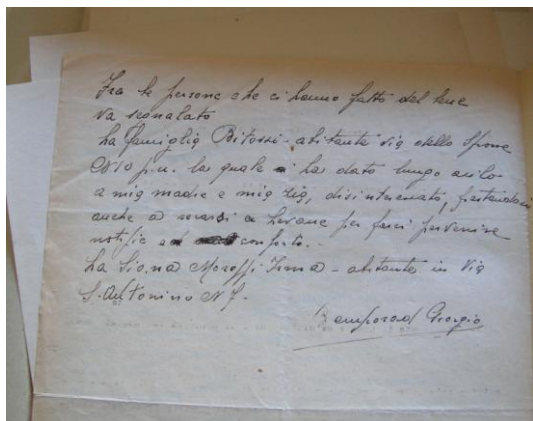 Fra le persone che ci hanno fatto del bene
va segnalato
La famiglia Bitossi - abitante via dello Sprone
N 10 p.u. la quale ha dato lungo asilo
a mia madre e mia zia, disinteressato, prestandosi
anche a recarsi a Levane per farci pervenire
notizie e conforto.
La Sig.na Moroffi Irma - abitante in Via
S. Antonino N 7.
Bemporad Giorgio